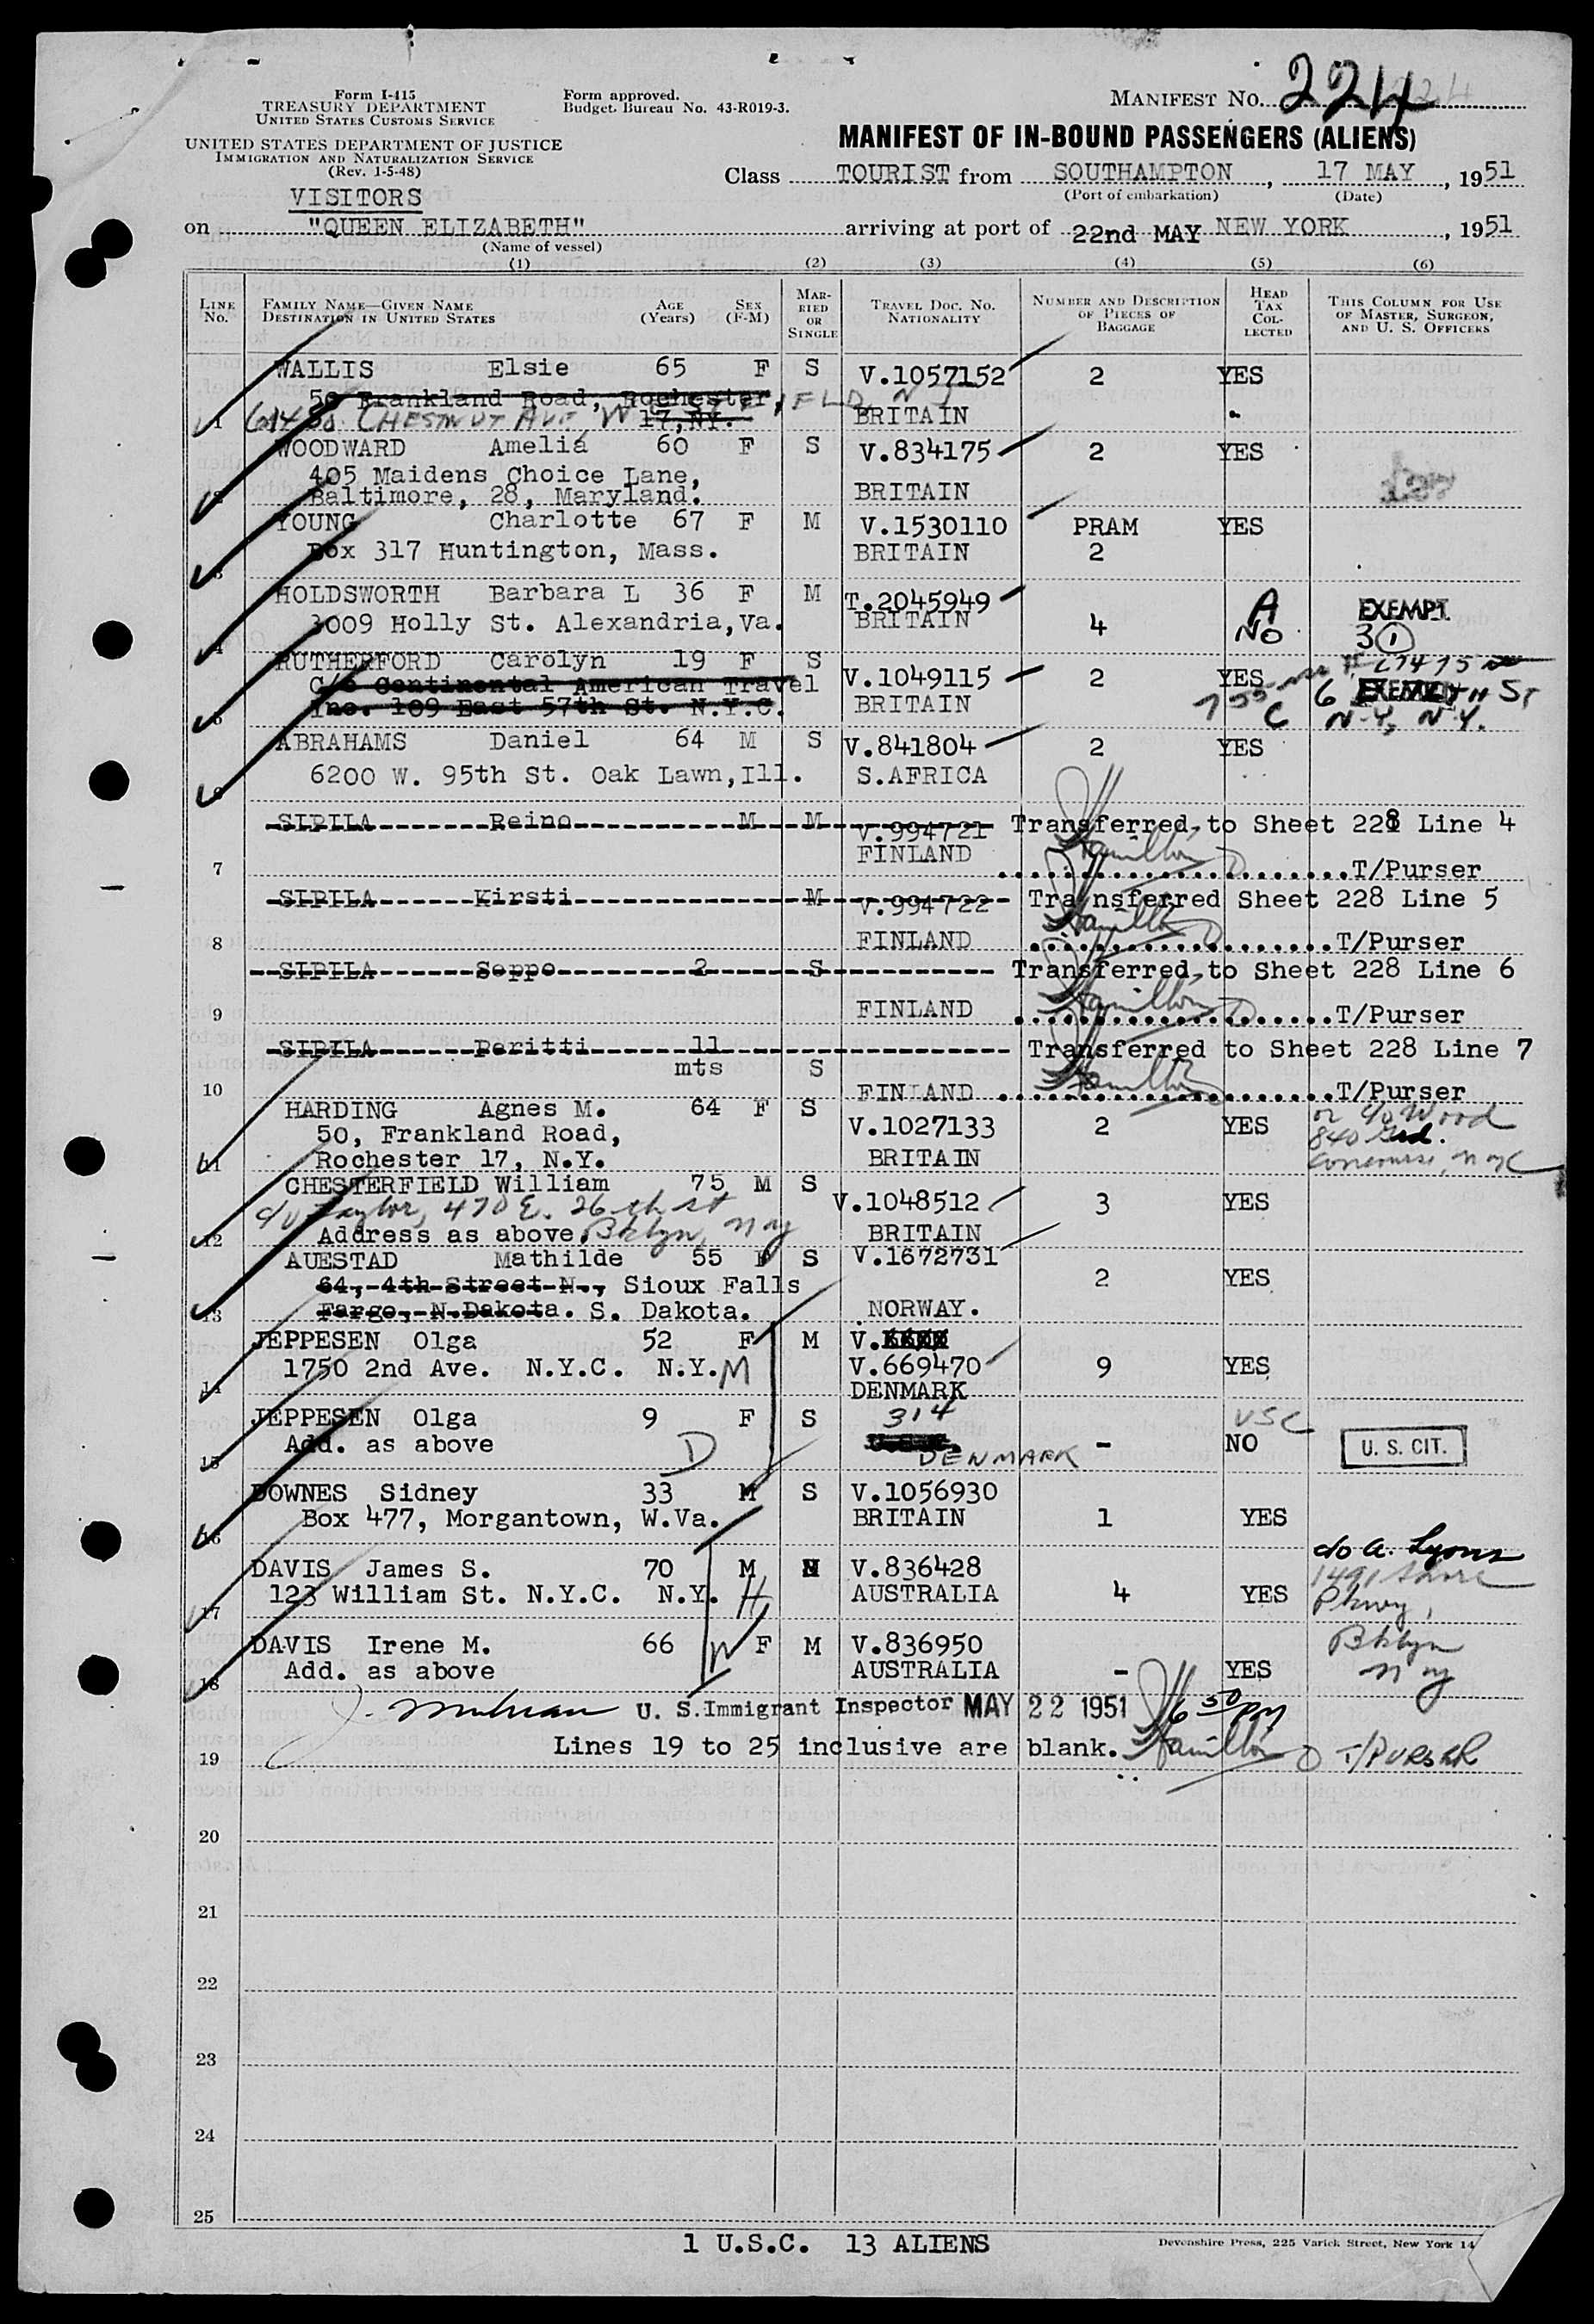 Form I-415
TREASURY DEPARTMENT
UNITED STATES CUSTOMS SERVICE
UNITED STATES DEPARTMENT OF JUSTICE
IMMIGRATION AND NATURALIZATION SERVICE
(Rev. 1-5-48)
VISITORS
Form approved.
Budget Bureau No. 43-R019-3.
MANIFEST NO. 224
MANIFEST OF IN-BOUND PASSENGERS (ALIENS)
Class TOURIST from SOUTHAMPTON, 17 MAY, 1951
(Port of embarkation) (Date)
on "QUEEN ELIZABETH" arriving at port of 22nd MAY NEW YORK, 1951
(Name of vessel)
(1) (2) (3) (4) (5) (6)
LINE NO.
FAMILY NAME—GIVEN NAME
DESTINATION IN UNITED STATES
AGE (Years)
SEX (F-M)
MARRIED OR SINGLE
TRAVEL DOC. NO. NATIONALITY
NUMBER AND DESCRIPTION OF PIECES OF BAGGAGE
HEAD TAX COLLECTED
THIS COLUMN FOR USE OF MASTER, SURGEON, AND U. S. OFFICERS
WALLIS Elsie 65 F S V.1057152 2 YES
50 Frankland Road, Rochester,
17, NY. BRITAIN
1 CHESTNUT AVE W FIELD, N J
WOODWARD Amelia 60 F S V.834175 2 YES
405 Maidens Choice Lane,
2 Baltimore, 28, Maryland. BRITAIN
YOUNG Charlotte 67 F M V.1530110 PRAM YES
Box 317 Huntington, Mass. BRITAIN 2
3
HOLDSWORTH Barbara L 36 F M T.2045949 A EXEMPT.
3009 Holly St. Alexandria, Va. BRITAIN 4 NO 3 (1)
4
RUTHERFORD Carolyn 19 F S V.1049115 2 YES
C/o Continental American Travel
Inc. 109 East 57th St. N.Y.C. BRITAIN EXEMPT St
5 C N.Y, N.Y.
ABRAHAMS Daniel 64 M S V.841804 2 YES
6200 W. 95th St. Oak Lawn, Ill. S.AFRICA
6
SIPILA Reino M M V.994721 Transferred to Sheet 228 Line 4
7 FINLAND Hamilton T/Purser
SIPILA Kirsti M V.994722 Transferred Sheet 228 Line 5
8 FINLAND Hamilton T/Purser
SIPILA Seppo 2 S Transferred to Sheet 228 Line 6
9 FINLAND Hamilton T/Purser
SIPILA Peritti 11 mts S Transferred to Sheet 228 Line 7
10 FINLAND Hamilton T/Purser
HARDING Agnes M. 64 F S V.1027133 2 YES or c/o Wood
50, Frankland Road, 840 Grd.
11 Rochester 17, N.Y. BRITAIN Concourse, NYC
CHESTERFIELD William 75 M S V.1048512 3 YES
c/o Taylor, 470 E. 26th st
12 Address as above. Bklyn, NY BRITAIN
AUESTAD Mathilde 55 F S V.1672731 2 YES
64, 4th Street N., Sioux Falls
13 Fargo, N.Dakota. S. Dakota. NORWAY.
JEPPESEN Olga 52 F M V.
1750 2nd Ave. N.Y.C. N.Y. M V.669470 9 YES
14 DENMARK
JEPPESEN Olga 9 F S 314 USC
Add. as above D DENMARK - NO U. S. CIT.
15
DOWNES Sidney 33 M S V.1056930
Box 477, Morgantown, W.Va. BRITAIN 1 YES
16
DAVIS James S. 70 M M V.836428 c/o A. Lyons
123 William St. N.Y.C. N.Y. H AUSTRALIA 4 YES 1491 Shore
17 Pkwy,
DAVIS Irene M. 66 W F M V.836950 Bklyn
Add. as above AUSTRALIA - YES NY
18
U. S. Immigrant Inspector MAY 22 1951 6 50 PM
19 Lines 19 to 25 inclusive are blank. Hamilton T/PURSER
20
21
22
23
24
25
1 U.S.C. 13 ALIENS
Devonshire Press, 225 Varick Street, New York 14